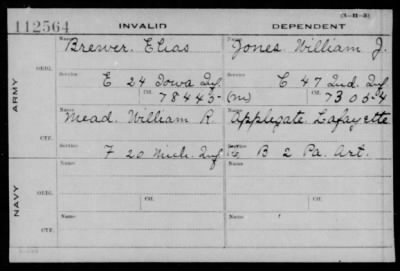 (3-21-3)
112564 INVALID DEPENDENT
Name Brewer, Elias Name Jones, William J.
ARMY ORIG. Service E 24 Iowa Inf. Service C 47 Ind. Inf.
Ctf. 78445 (m) Ctf. 7305
CTF. Name Mead, William R. Name Applegate Lafayette
Service F 20 Mich. Inf. Service B 2 Pa. Art.
NAVY ORIG. Name Name
Ctf. Ctf.
CTF. Name Name